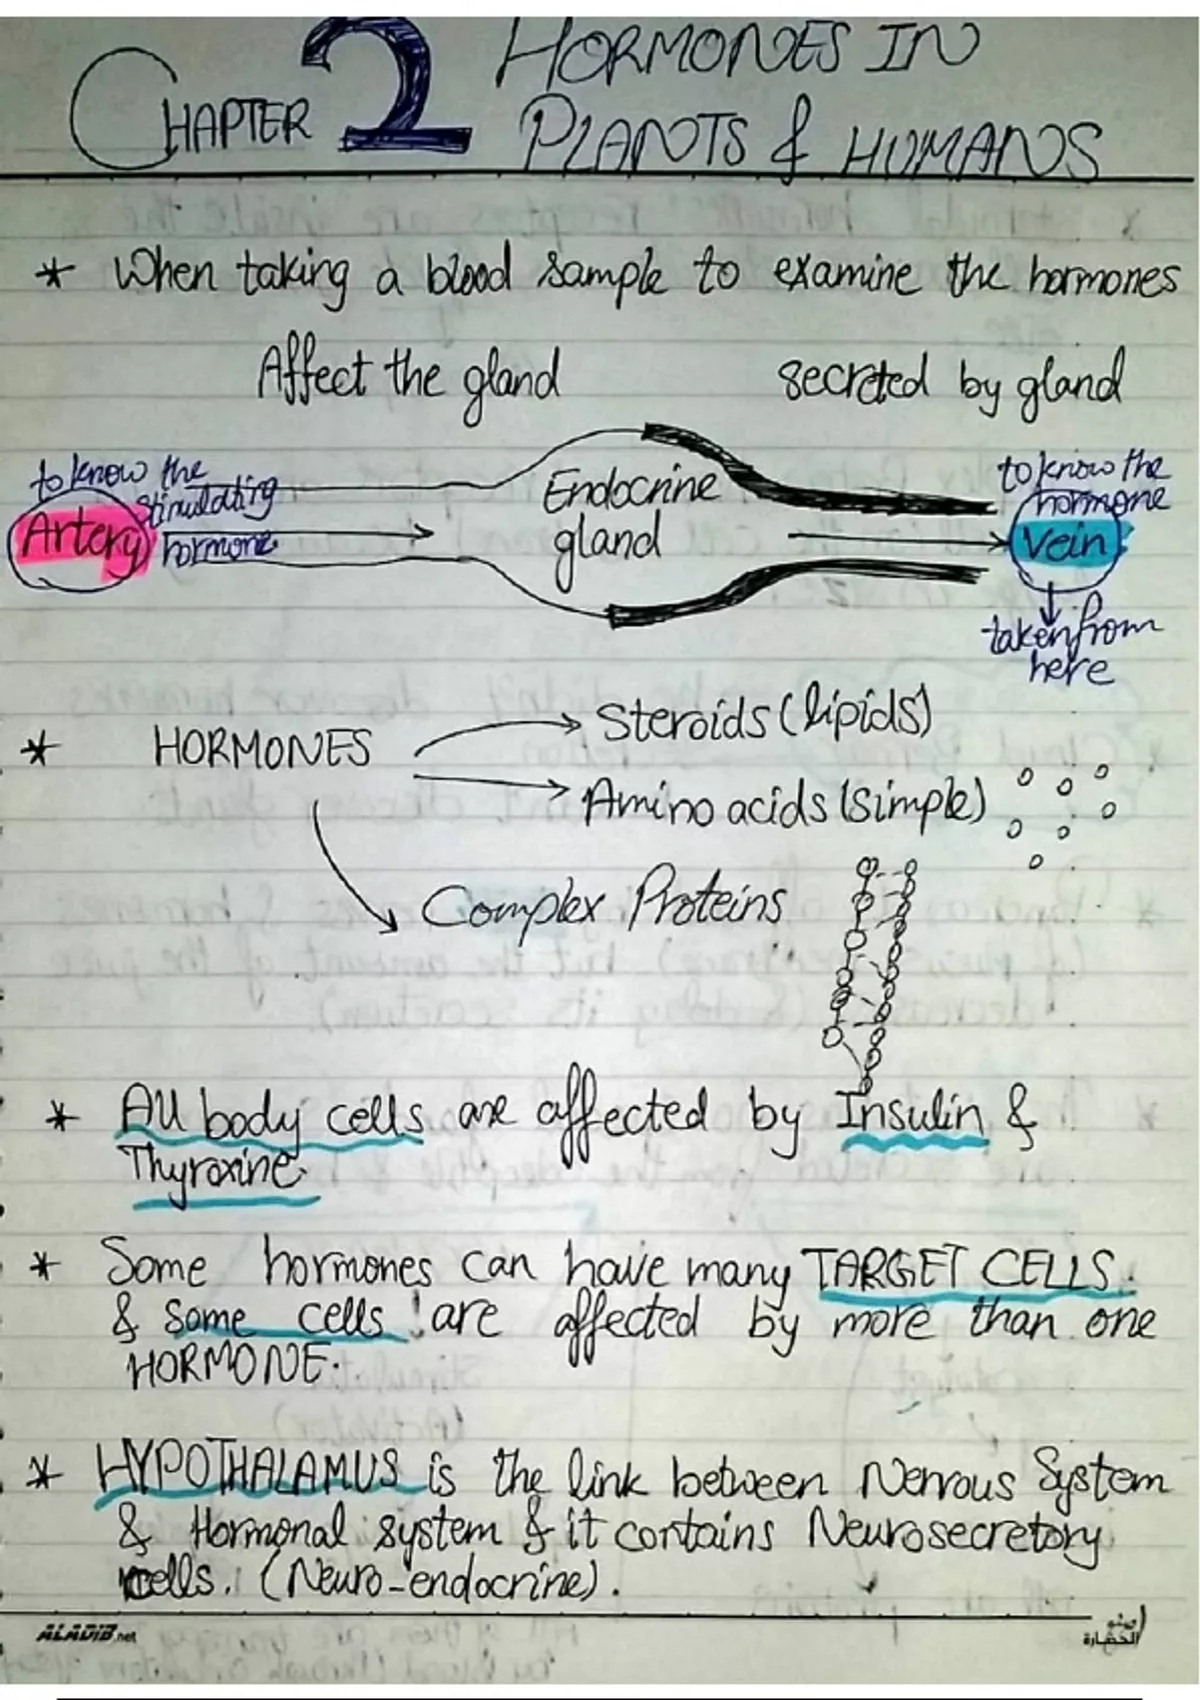 CHAPTER 2 HORMONES IN
PLANTS & HUMANS
* When taking a blood sample to examine the hormones
Affect the gland secreted by gland
to know the
stimulating
hormone
Artery
Endocrine
gland
to know the
hormone
Vein
taken from
here
* HORMONES
Steroids (lipids)
Amino acids (simple)
Complex Proteins
* All body cells are affected by Insulin &
Thyroxine.
* Some hormones can have many TARGET CELLS.
& some cells are affected by more than one
HORMONE.
* HYPOTHALAMUS is the link between Nervous System
& Hormonal system & it contains Neurosecretory
cells. (Neuro-endocrine).
ALADIB.net